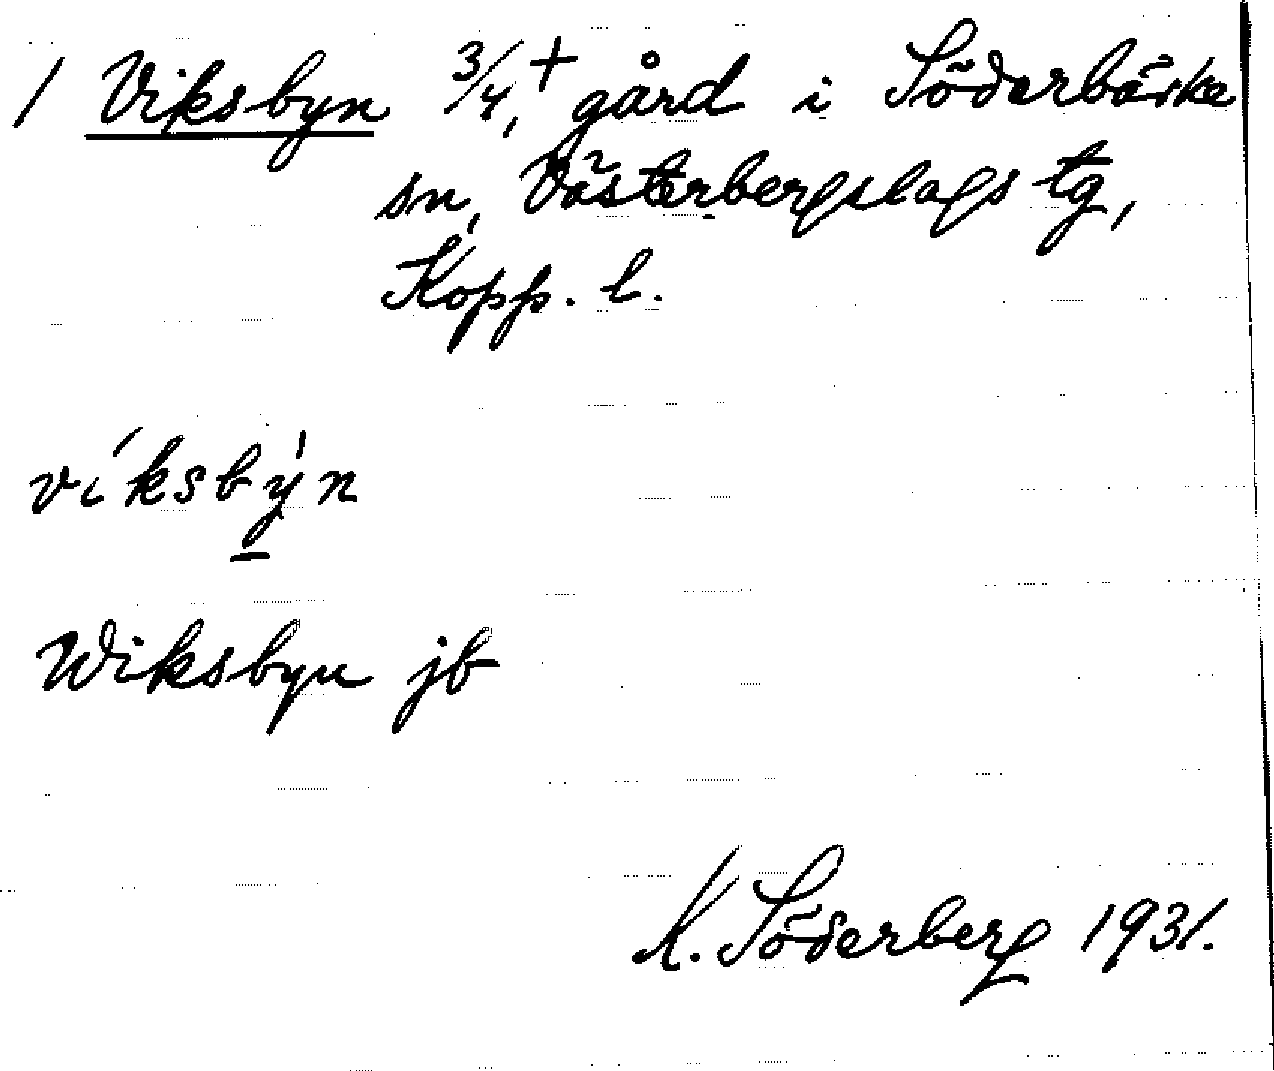 1 Viksbyn 3/4,+ gård i Söderbärke
sn, Västerbergslags tg,
Kopp. l.
víksbýn
Wiksbyn jb
K. Söderberg 1931.